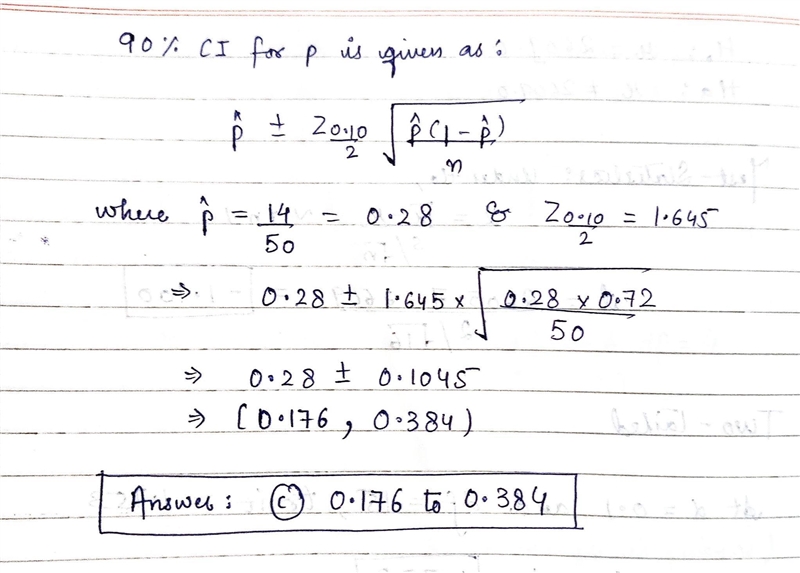 90% CI for p is given as:
p̂ ± Z0.10/2 √(p̂(1-p̂)/n)
where p̂ = 14/50 = 0.28 & Z0.10/2 = 1.645
⇒ 0.28 ± 1.645 × √(0.28 × 0.72/50)
⇒ 0.28 ± 0.1045
⇒ (0.176, 0.384)
Answer: (c) 0.176 to 0.384